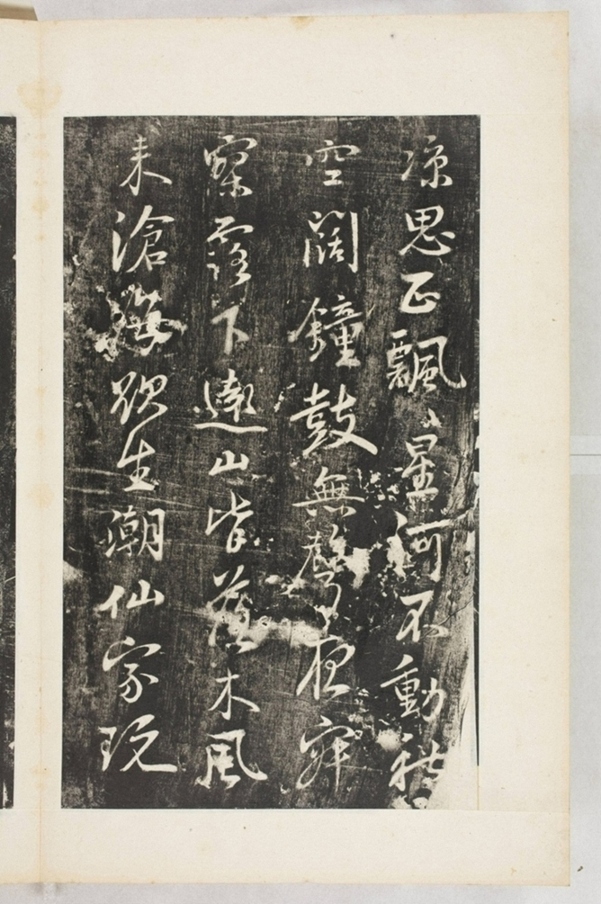 凉思正飄〻星河不動秋
空闊鐘鼓無聲夜寂
寥露下遠山皆落木風
来滄海欲生潮仙家